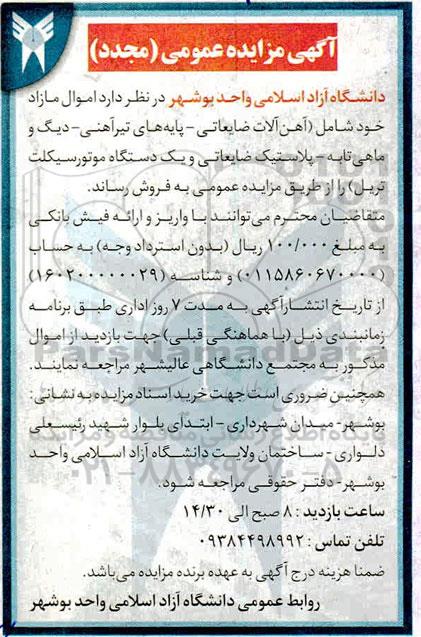 آگهی مزایده عمومی (مجدد)
دانشگاه آزاد اسلامی واحد بوشهر در نظر دارد اموال مازاد
خود شامل (آهن آلات ضایعاتی - پایه‌های تیرآهنی - دیگ و
ماهی تابه - پلاستیک ضایعاتی و یک دستگاه موتورسیکلت
تریل) را از طریق مزایده عمومی به فروش رساند.
متقاضیان محترم می‌توانند با واریز و ارائه فیش بانکی
به مبلغ ۱۰۰/۰۰۰ ریال (بدون استرداد وجه) به حساب
(۰۱۱۵۸۶۰۶۷۰۰۰۰) و شناسه (۱۶۰۲۰۰۰۰۰۰۰۲۹)
از تاریخ انتشار آگهی به مدت ۷ روز اداری طبق برنامه
زمانبندی ذیل (با هماهنگی قبلی) جهت بازدید از اموال
مذکور به مجتمع دانشگاهی عالیشهر مراجعه نمایند.
همچنین ضروری است جهت خرید اسناد مزایده به نشانی:
بوشهر - میدان شهرداری - ابتدای بلوار شهید رئیسعلی
دلواری - ساختمان ولایت دانشگاه آزاد اسلامی واحد
بوشهر - دفتر حقوقی مراجعه شود.
ساعت بازدید : ۸ صبح الی ۱۴/۳۰
تلفن تماس : ۰۹۳۸۴۴۹۸۹۹۲
ضمنا هزینه درج آگهی به عهده برنده مزایده می‌باشد.
روابط عمومی دانشگاه آزاد اسلامی واحد بوشهر
ParsNamadData
۰۲۱-۸۸۳۴۹۶۷۰-۵